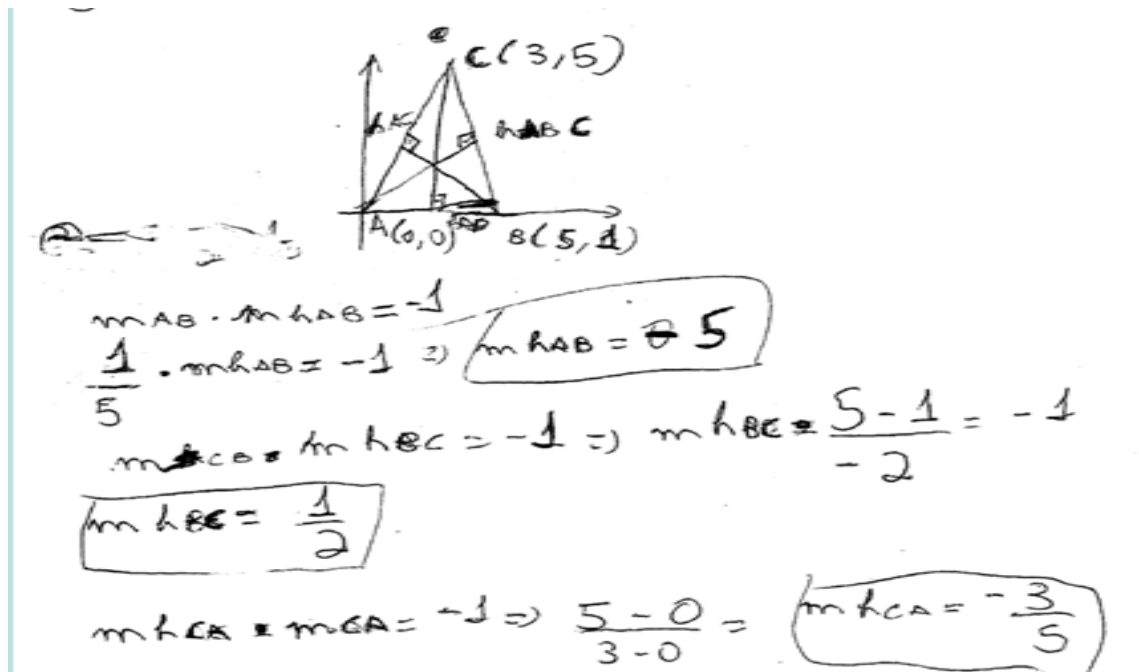 C(3,5)
hAB C
A(0,0) B(5,1)
mAB · mhAB = -1
1/5 · mhAB = -1 => mhAB = 5
CB · mhBC = -1 => mhBC · (5-1)/(-2) = -1
mhBC = 1/2
mhCA · mCA = -1 => (5-0)/(3-0) = mhCA = -3/5